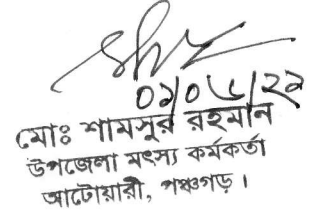 ০১/০৮/২২
মোঃ শামসুর রহমান
উপজেলা মৎস্য কর্মকর্তা
আটোয়ারী, পঞ্চগড়।